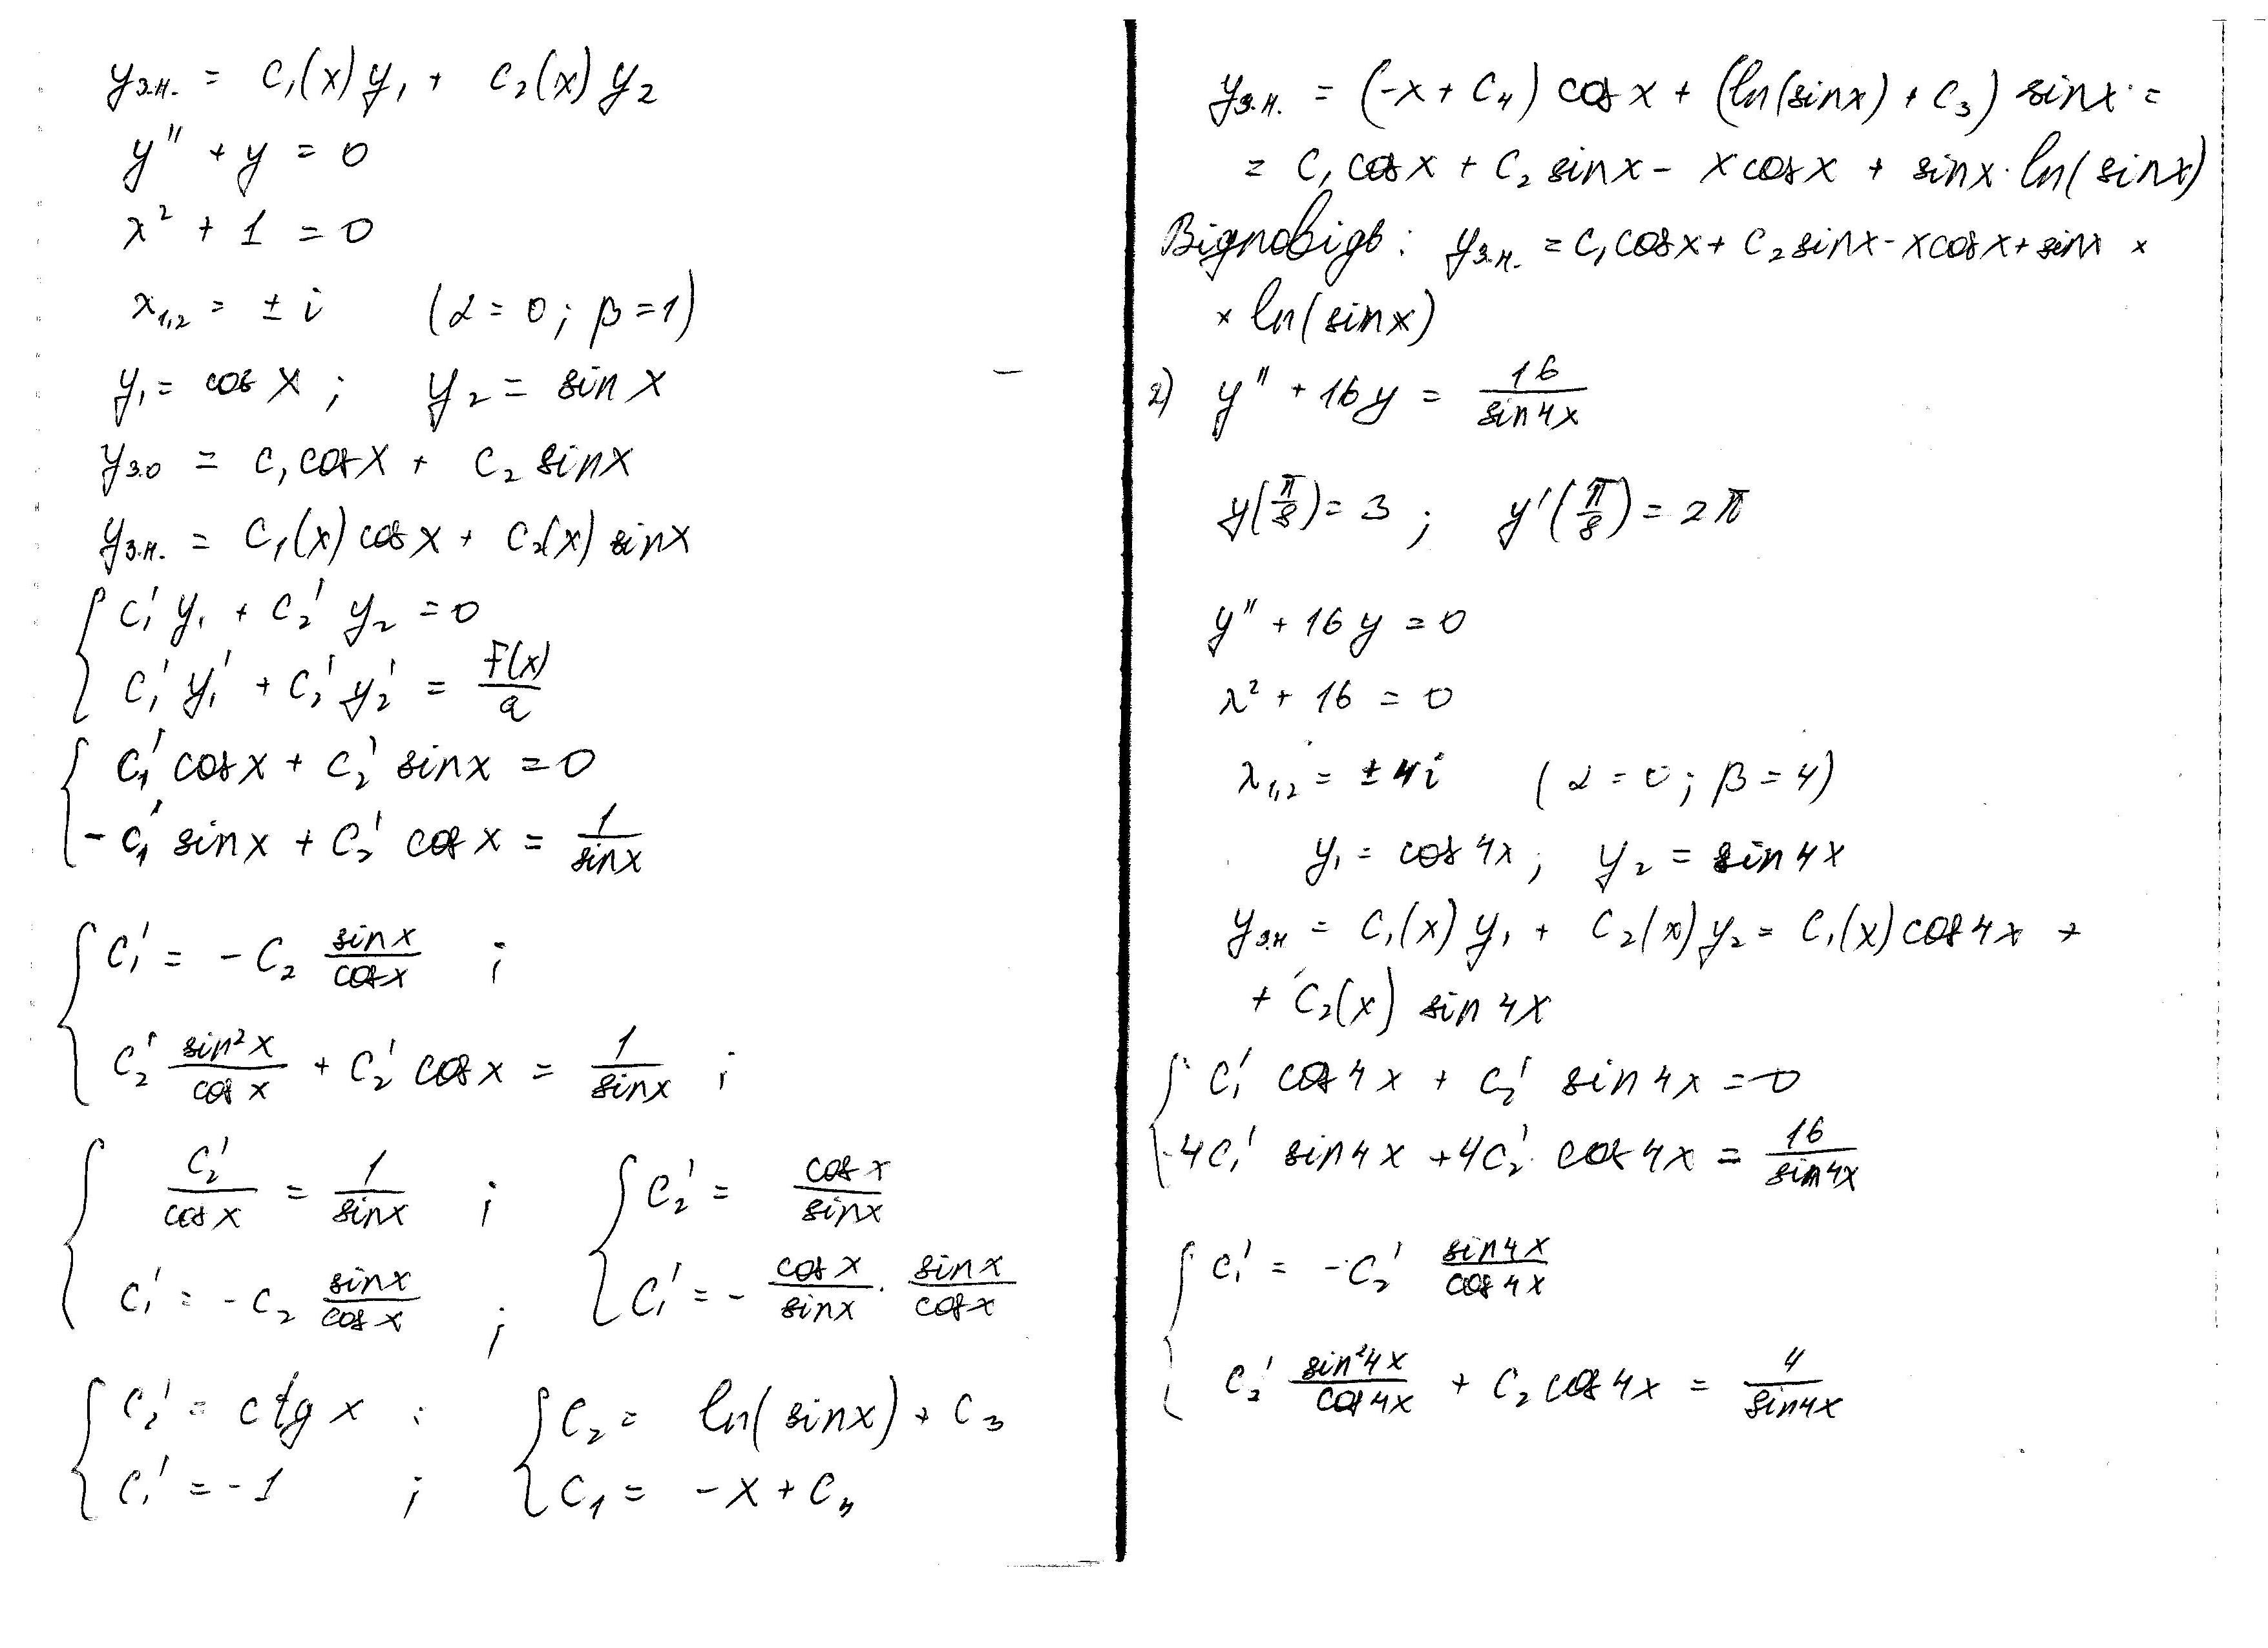 yз.н. = C₁(x)y₁ + C₂(x)y₂
y'' + y = 0
λ² + 1 = 0
λ₁,₂ = ± i (α = 0; β = 1)
y₁ = cos x; y₂ = sin x
yз.о = C₁cosx + C₂ sinx
yз.н. = C₁(x)cosx + C₂(x) sinx
{ C₁' y₁ + C₂' y₂ = 0
C₁' y₁' + C₂' y₂' = F(x)/a
{ C₁' cosx + C₂' sinx = 0
- C₁' sinx + C₂' cosx = 1/sinx
{ C₁' = - C₂ sinx/cosx ;
C₂' sin²x/cosx + C₂' cosx = 1/sinx ;
{ C₂'/cosx = 1/sinx ; { C₂' = cosx/sinx
C₁' = - C₂ sinx/cosx ; C₁' = - cosx/sinx · sinx/cosx
{ C₂' = ctg x ; { C₂ = ln(sinx) + C₃
C₁' = -1 ; C₁ = -x + C₄
yз.н. = (-x + C₄) cosx + (ln(sinx) + C₃) sinx =
= C₁cosx + C₂ sinx - xcosx + sinx · ln(sinx)
Відповідь: yз.н. = C₁cosx + C₂sinx - xcosx + sinx ×
× ln(sinx)
2) y'' + 16y = 16/sin4x
y(π/8) = 3 ; y'(π/8) = 2π
y'' + 16y = 0
λ² + 16 = 0
λ₁,₂ = ± 4i (α = 0; β = 4)
y₁ = cos4x ; y₂ = sin4x
yз.н = C₁(x)y₁ + C₂(x)y₂ = C₁(x)cos4x +
+ C₂(x) sin4x
{ C₁' cos4x + C₂' sin4x = 0
-4C₁' sin4x + 4C₂' cos4x = 16/sin4x
{ C₁' = - C₂' sin4x/cos4x
C₂' sin²4x/cos4x + C₂cos4x = 4/sin4x